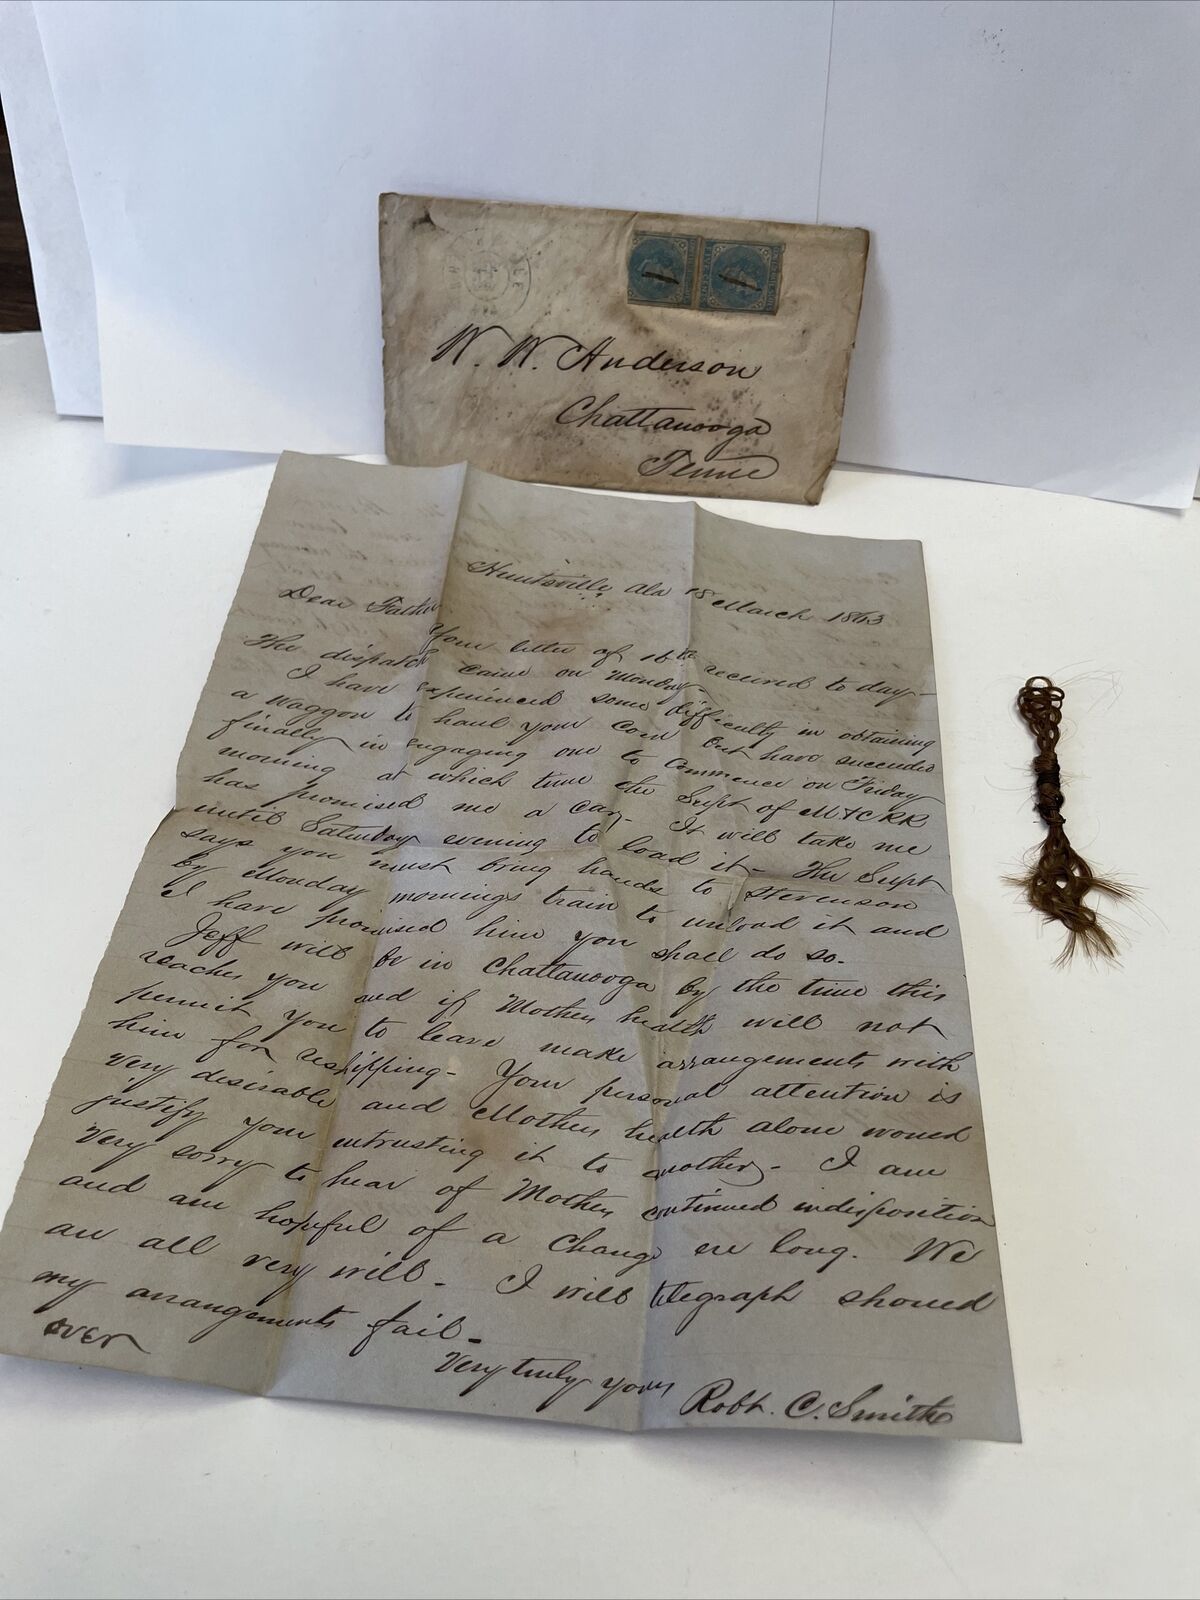 W. W. Anderson
Chattanooga
Tenne
FIVE CENTS
Huntsville Ala 18 March 1863
Dear Father
Your letter of 16th received to day-
The dispatch came on Monday
I have experienced some difficulty in obtaining
a waggon to haul your corn but have succeeded
finally in engaging one to commence on Friday
morning at which time the Supt of M & C RR
has promised me a car- It will take me
until Saturday evening to load it- The Supt
says you must bring hands to Stevenson
by Monday mornings train to unload it and
I have promised him you shall do so-
Jeff will be in Chattanooga by the time this
reaches you and if Mothers health will not
permit you to leave make arrangements with
him for reshipping- Your personal attention is
very desirable and Mothers health alone would
justify your entrusting it to another- I am
very sorry to hear of Mothers continued indisposition
and am hopeful of a change ere long. We
are all very well- I will telegraph should
my arrangements fail-
over
Very truly yours
Robt. C. Smith